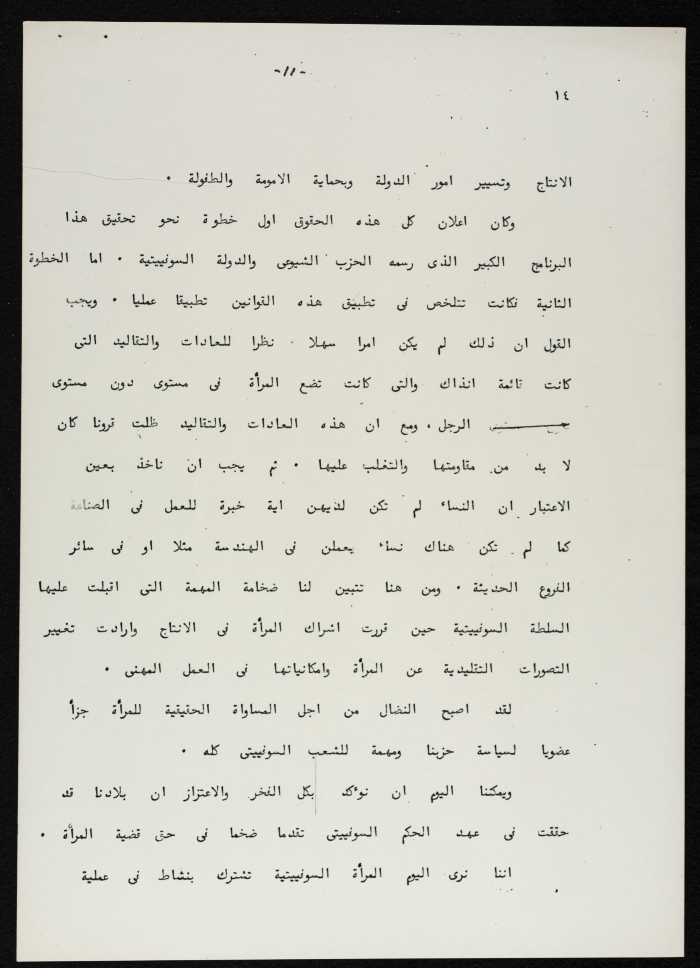 -١١-
١٤
الانتاج وتسيير امور الدولة وبحماية الامومة والطفولة .
وكان اعلان كل هذه الحقوق اول خطوة نحو تحقيق هذا
البرنامج الكبير الذى رسمه الحزب الشيوعى والدولة السوفييتية . اما الخطوة
الثانية فكانت تتلخص فى تطبيق هذه القوانين تطبيقا عمليا . ويجب
القول ان ذلك لم يكن امرا سهلا . نظرا للعادات والتقاليد التى
كانت قائمة انذاك والتى كانت تضع المرأة فى مستوى دون مستوى
الرجل . ومع ان هذه العادات والتقاليد ظلت قرونا كان
لا بد من مقاومتها والتغلب عليها . ثم يجب ان ناخذ بعين
الاعتبار ان النساء لم تكن لديهن اية خبرة للعمل فى الصناعة
كما لم تكن هناك نساء يعملن فى الهندسة مثلا او فى سائر
الفروع الحديثة . ومن هنا تتبين لنا ضخامة المهمة التى اقبلت عليها
السلطة السوفييتية حين قررت اشراك المرأة فى الانتاج وارادت تغيير
التصورات التقليدية عن المرأة وامكانياتها فى العمل المهنى .
لقد اصبح النضال من اجل المساواة الحقيقية للمرأة جزأ
عضويا لسياسة حزبنا ومهمة للشعب السوفييتى كله .
ويمكننا اليوم ان نؤكد بكل الفخر والاعتزاز ان بلادنا قد
حققت فى عهد الحكم السوفييتى تقدما ضخما فى حق قضية المرأة .
اننا نرى اليوم المرأة السوفييتية تشترك بنشاط فى عملية